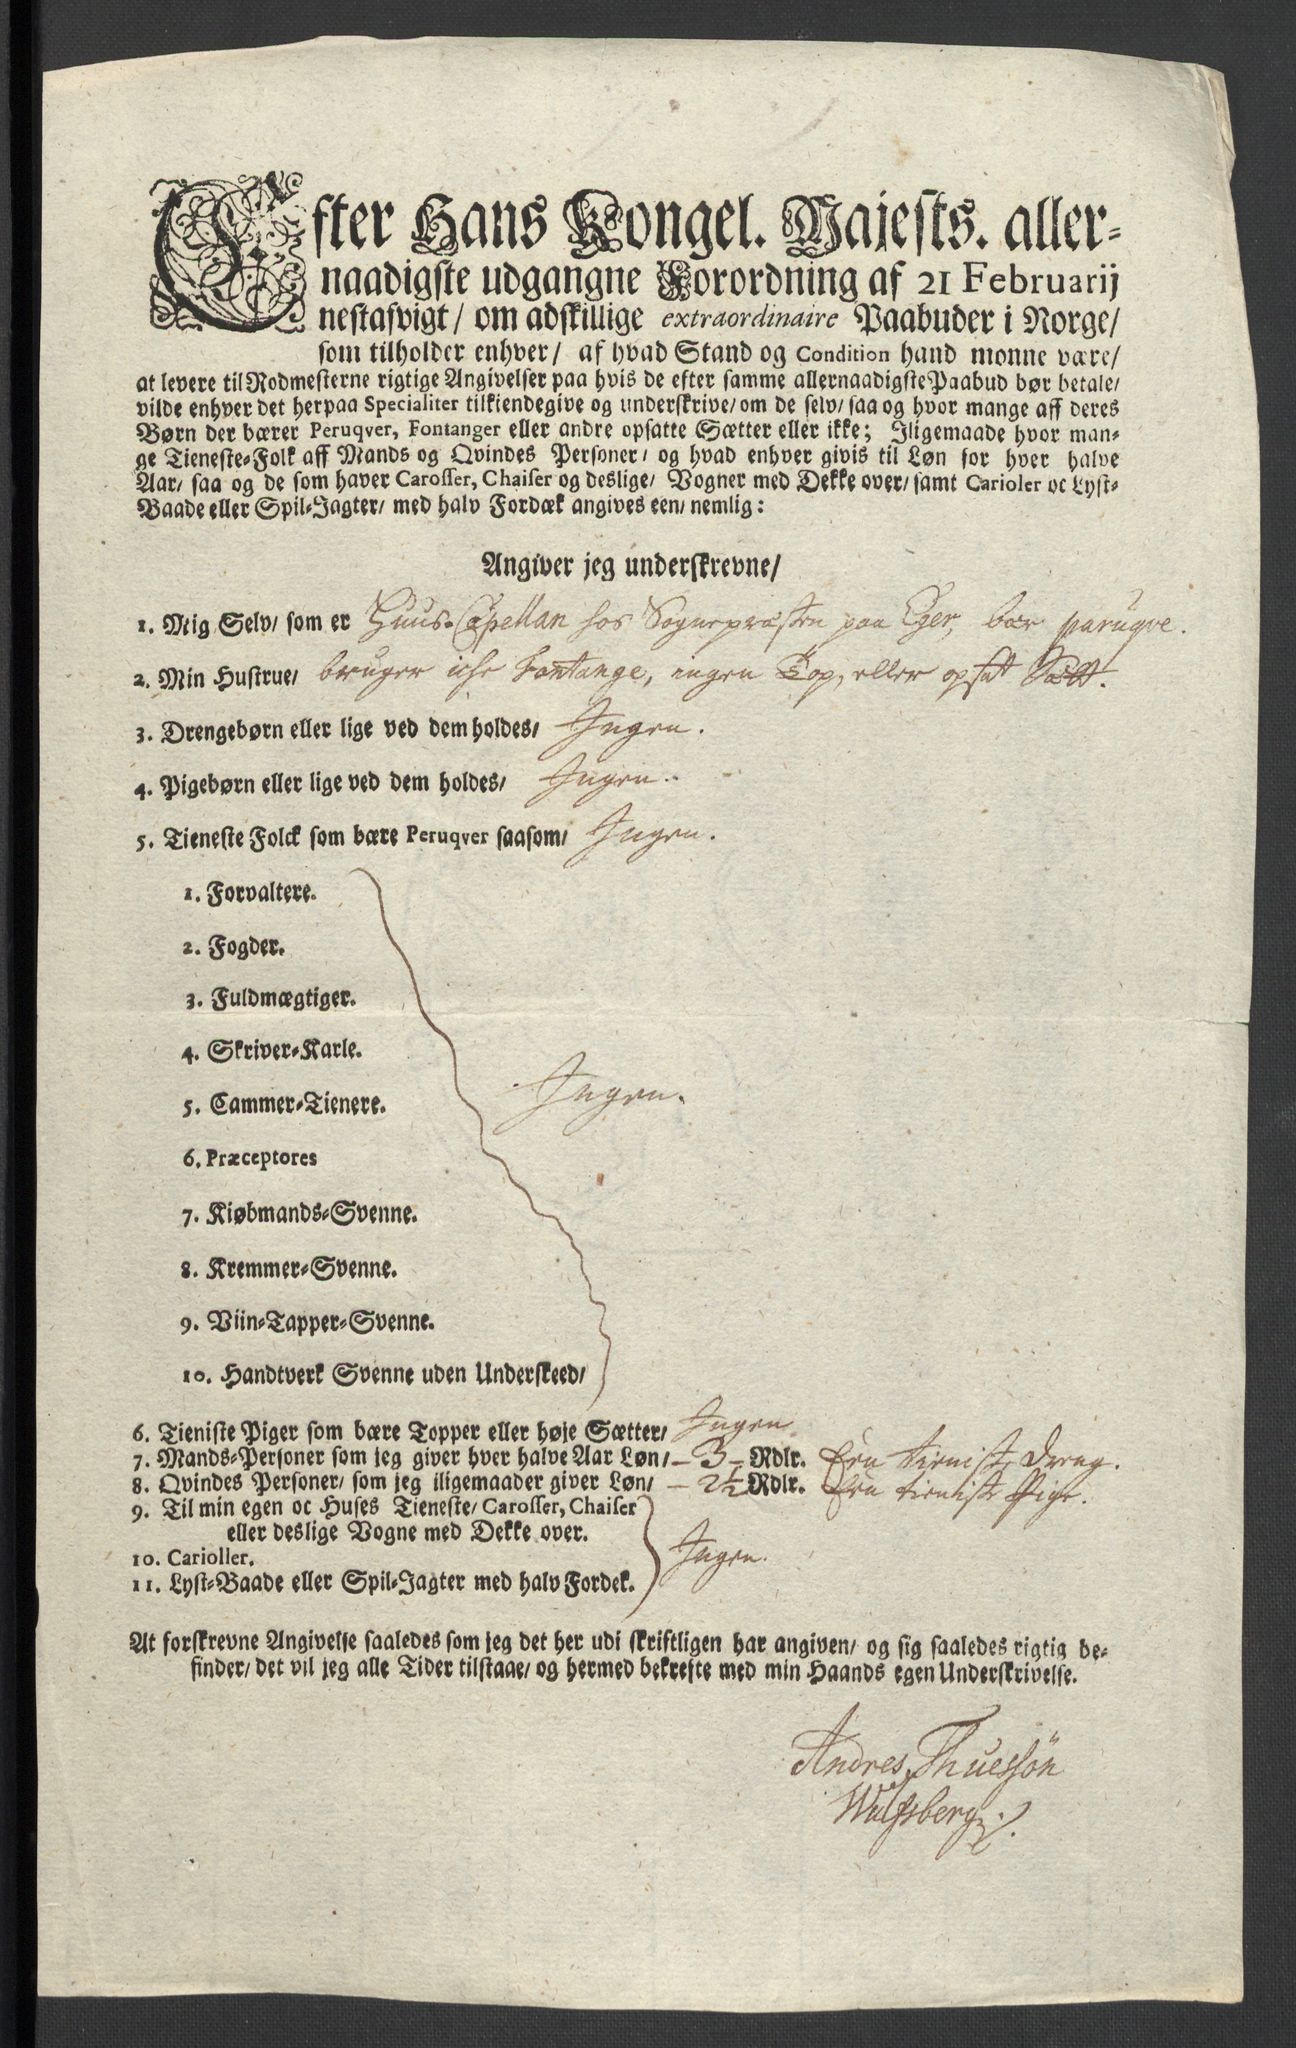 Efter Hans Kongel. Majests. aller-
naadigste udgangne Forordning af 21 Februarij
nestafvigt/ om adskillige extraordinaire Paabuder i Norge/
som tilholder enhver/ af hvad Stand og Condition hand monne være/
at levere til Rodmesterne rigtige Angivelser paa hvis de efter samme allernaadigste Paabud bør betale/
vilde enhver det herpaa Specialiter tilkiendegive og underskrive/ om de selv/ saa og hvor mange aff deres
Børn der bærer Peruqver, Fontanger eller andre opsatte Sætter eller ikke; Iligemaade hvor man-
ge Tieneste-Folk aff Mands og Qvindes Personer/ og hvad enhver givis til Løn for hver halve
Aar/ saa og de som haver Carosser, Chaiser og deslige/ Vogner med Dekke over/ samt Carioler oc Lyst-
Baade eller Spil-Jagter/ med halv Fordæk angives een/ nemlig:
Angiver jeg underskrevne/
1. Mig Selv/ som er Huus-Capellan hos Sognepræsten paa Eger, bær paruqve.
2. Min Hustrue/ bruger iche Fontange, ingen Top, eller opsat Sætt.
3. Drengebørn eller lige ved dem holdes/ Ingen.
4. Pigebørn eller lige ved dem holdes/ Ingen.
5. Tieneste Folck som bære Peruqver saasom/ Ingen.
1. Forvaltere.
2. Fogder.
3. Fuldmægtiger.
4. Skriver-Karle.
5. Cammer-Tienere. Ingen.
6. Præceptores
7. Kiøbmands-Svenne.
8. Kremmer-Svenne.
9. Viin-Tapper-Svenne.
10. Handtverk Svenne uden Underskeed/
6. Tieniste Piger som bære Topper eller høje Sætter/ Ingen
7. Mands-Personer som jeg giver hver halve Aar Løn/ - 3 - Rdlr. Een tieniste Dreng.
8. Qvindes Personer/ som jeg iligemaader giver Løn/ - 2½ Rdlr. Een tieniste Pige.
9. Til min egen oc Huses Tieneste/ Carosser, Chaiser
eller deslige Vogne med Dekke over.
10. Carioller. Ingen.
11. Lyst-Baade eller Spil-Jagter med halv Fordek.
At forskrevne Angivelse saaledes som jeg det her udi skriftligen har angiven/ og sig saaledes rigtig be-
finder/ det vil jeg alle Tider tilstaae/ og hermed bekrefte med min Haands egen Underskrivelse.
Andres Thuessön
Wulfsberg